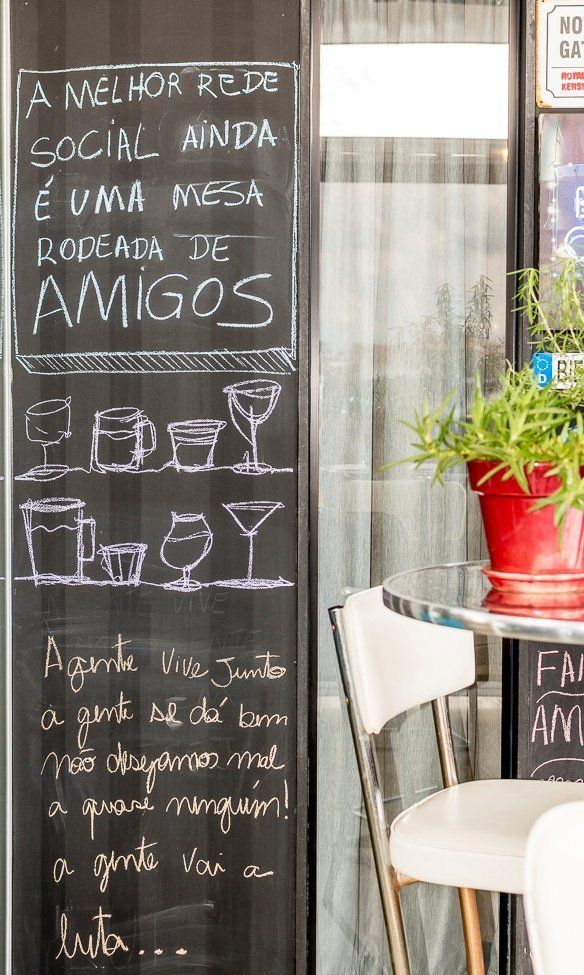 A MELHOR REDE
SOCIAL AINDA
É UMA MESA
RODEADA DE
AMIGOS
A gente vive junto
a gente se dá bem
não desejamos mal
a quase ninguém!
a gente vai a
luta...
NO
GA
ROYA
KENSI
D
FA
AM